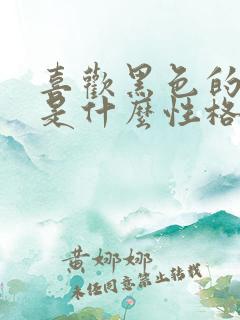 喜歡黑色的
是什麼性格
黃娜娜
未任同意禁止转载